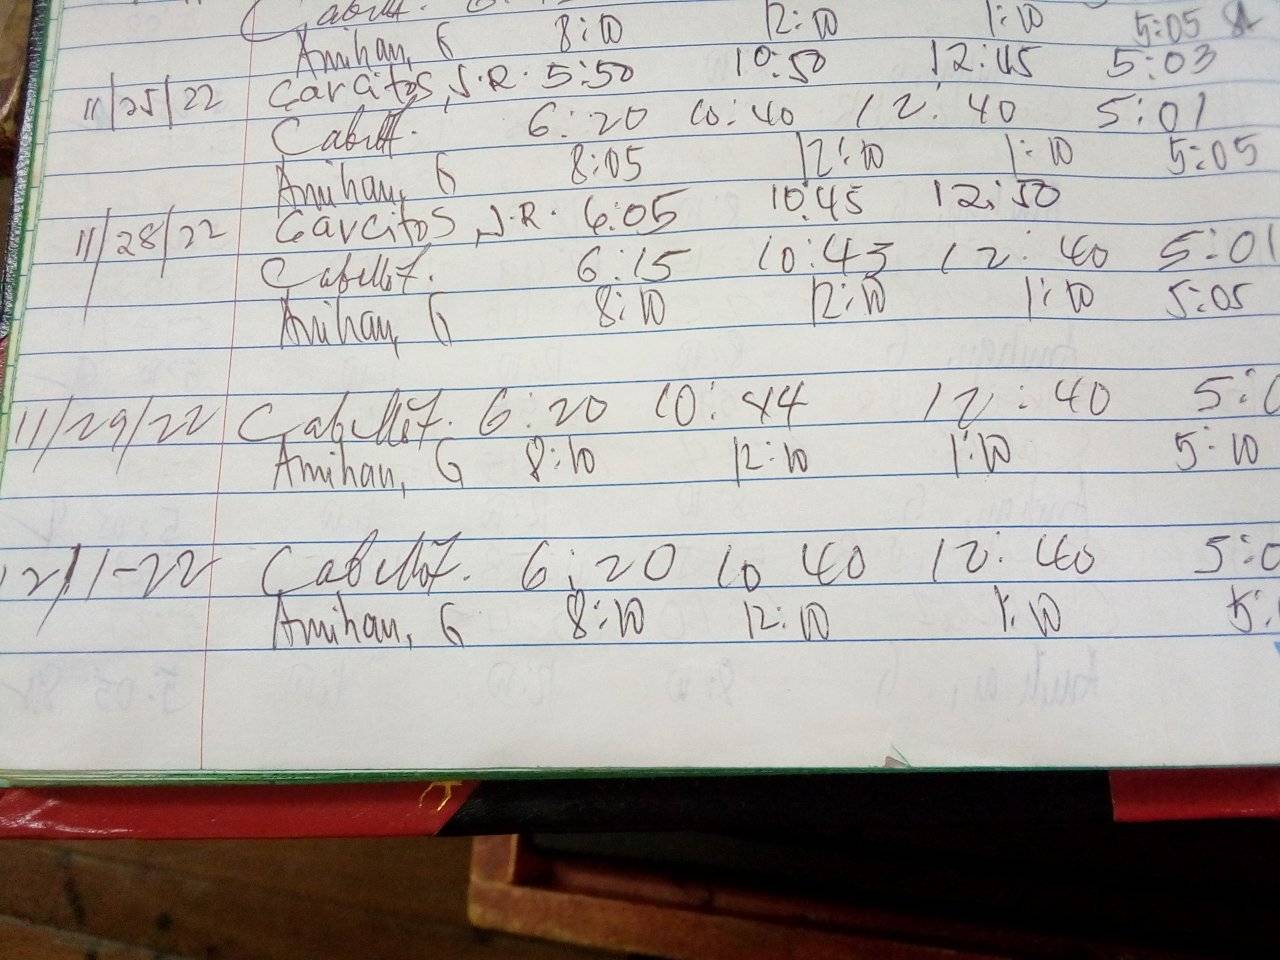 Amihan, G 8:10 12:10 1:10 5:05
11/25/22 Garcitos, J.R. 5:50 10:50 12:45 5:03
6:20 10:40 12:40 5:01
Amihan, G 8:05 12:10 1:10 5:05
11/28/22 Garcitos, J.R. 6:05 10:45 12:50
6:15 10:43 12:40 5:01
Amihan, G 8:10 12:10 1:10 5:05
11/29/22 6:20 10:44 12:40
Amihan, G 8:10 12:10 1:10 5:10
12/1-22 6:20 10 40 12:40
Amihan, G 8:10 12:10 1:10